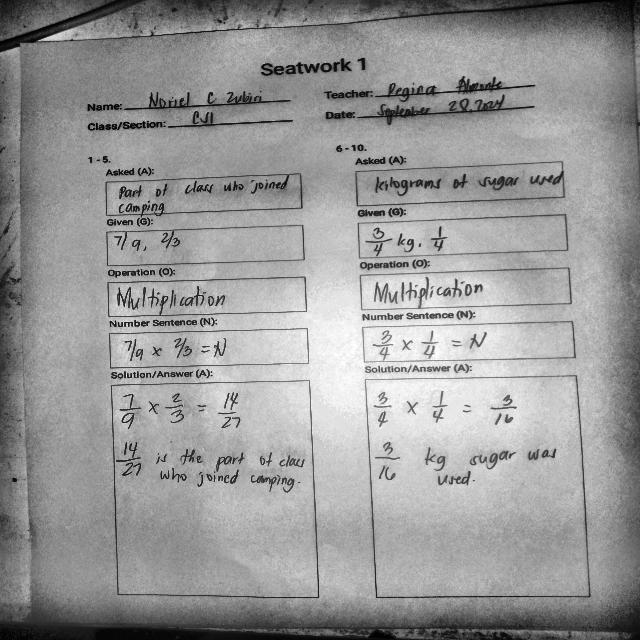 Seatwork 1
Name: Noriel C Zubiri
Teacher: Regina
Class/Section: CSII
Date: September 28, 2024
1 - 5.
Asked (A):
Part of class who joined
camping
Given (G):
7/9, 2/3
Operation (O):
Multiplication
Number Sentence (N):
7/9 x 2/3 = N
Solution/Answer (A):
7/9 x 2/3 = 14/27
14/27 is the part of class
who joined camping.
6 - 10.
Asked (A):
kilograms of sugar used
Given (G):
3/4 kg, 1/4
Operation (O):
Multiplication
Number Sentence (N):
3/4 x 1/4 = N
Solution/Answer (A):
3/4 x 1/4 = 3/16
3/16 kg sugar was
used.